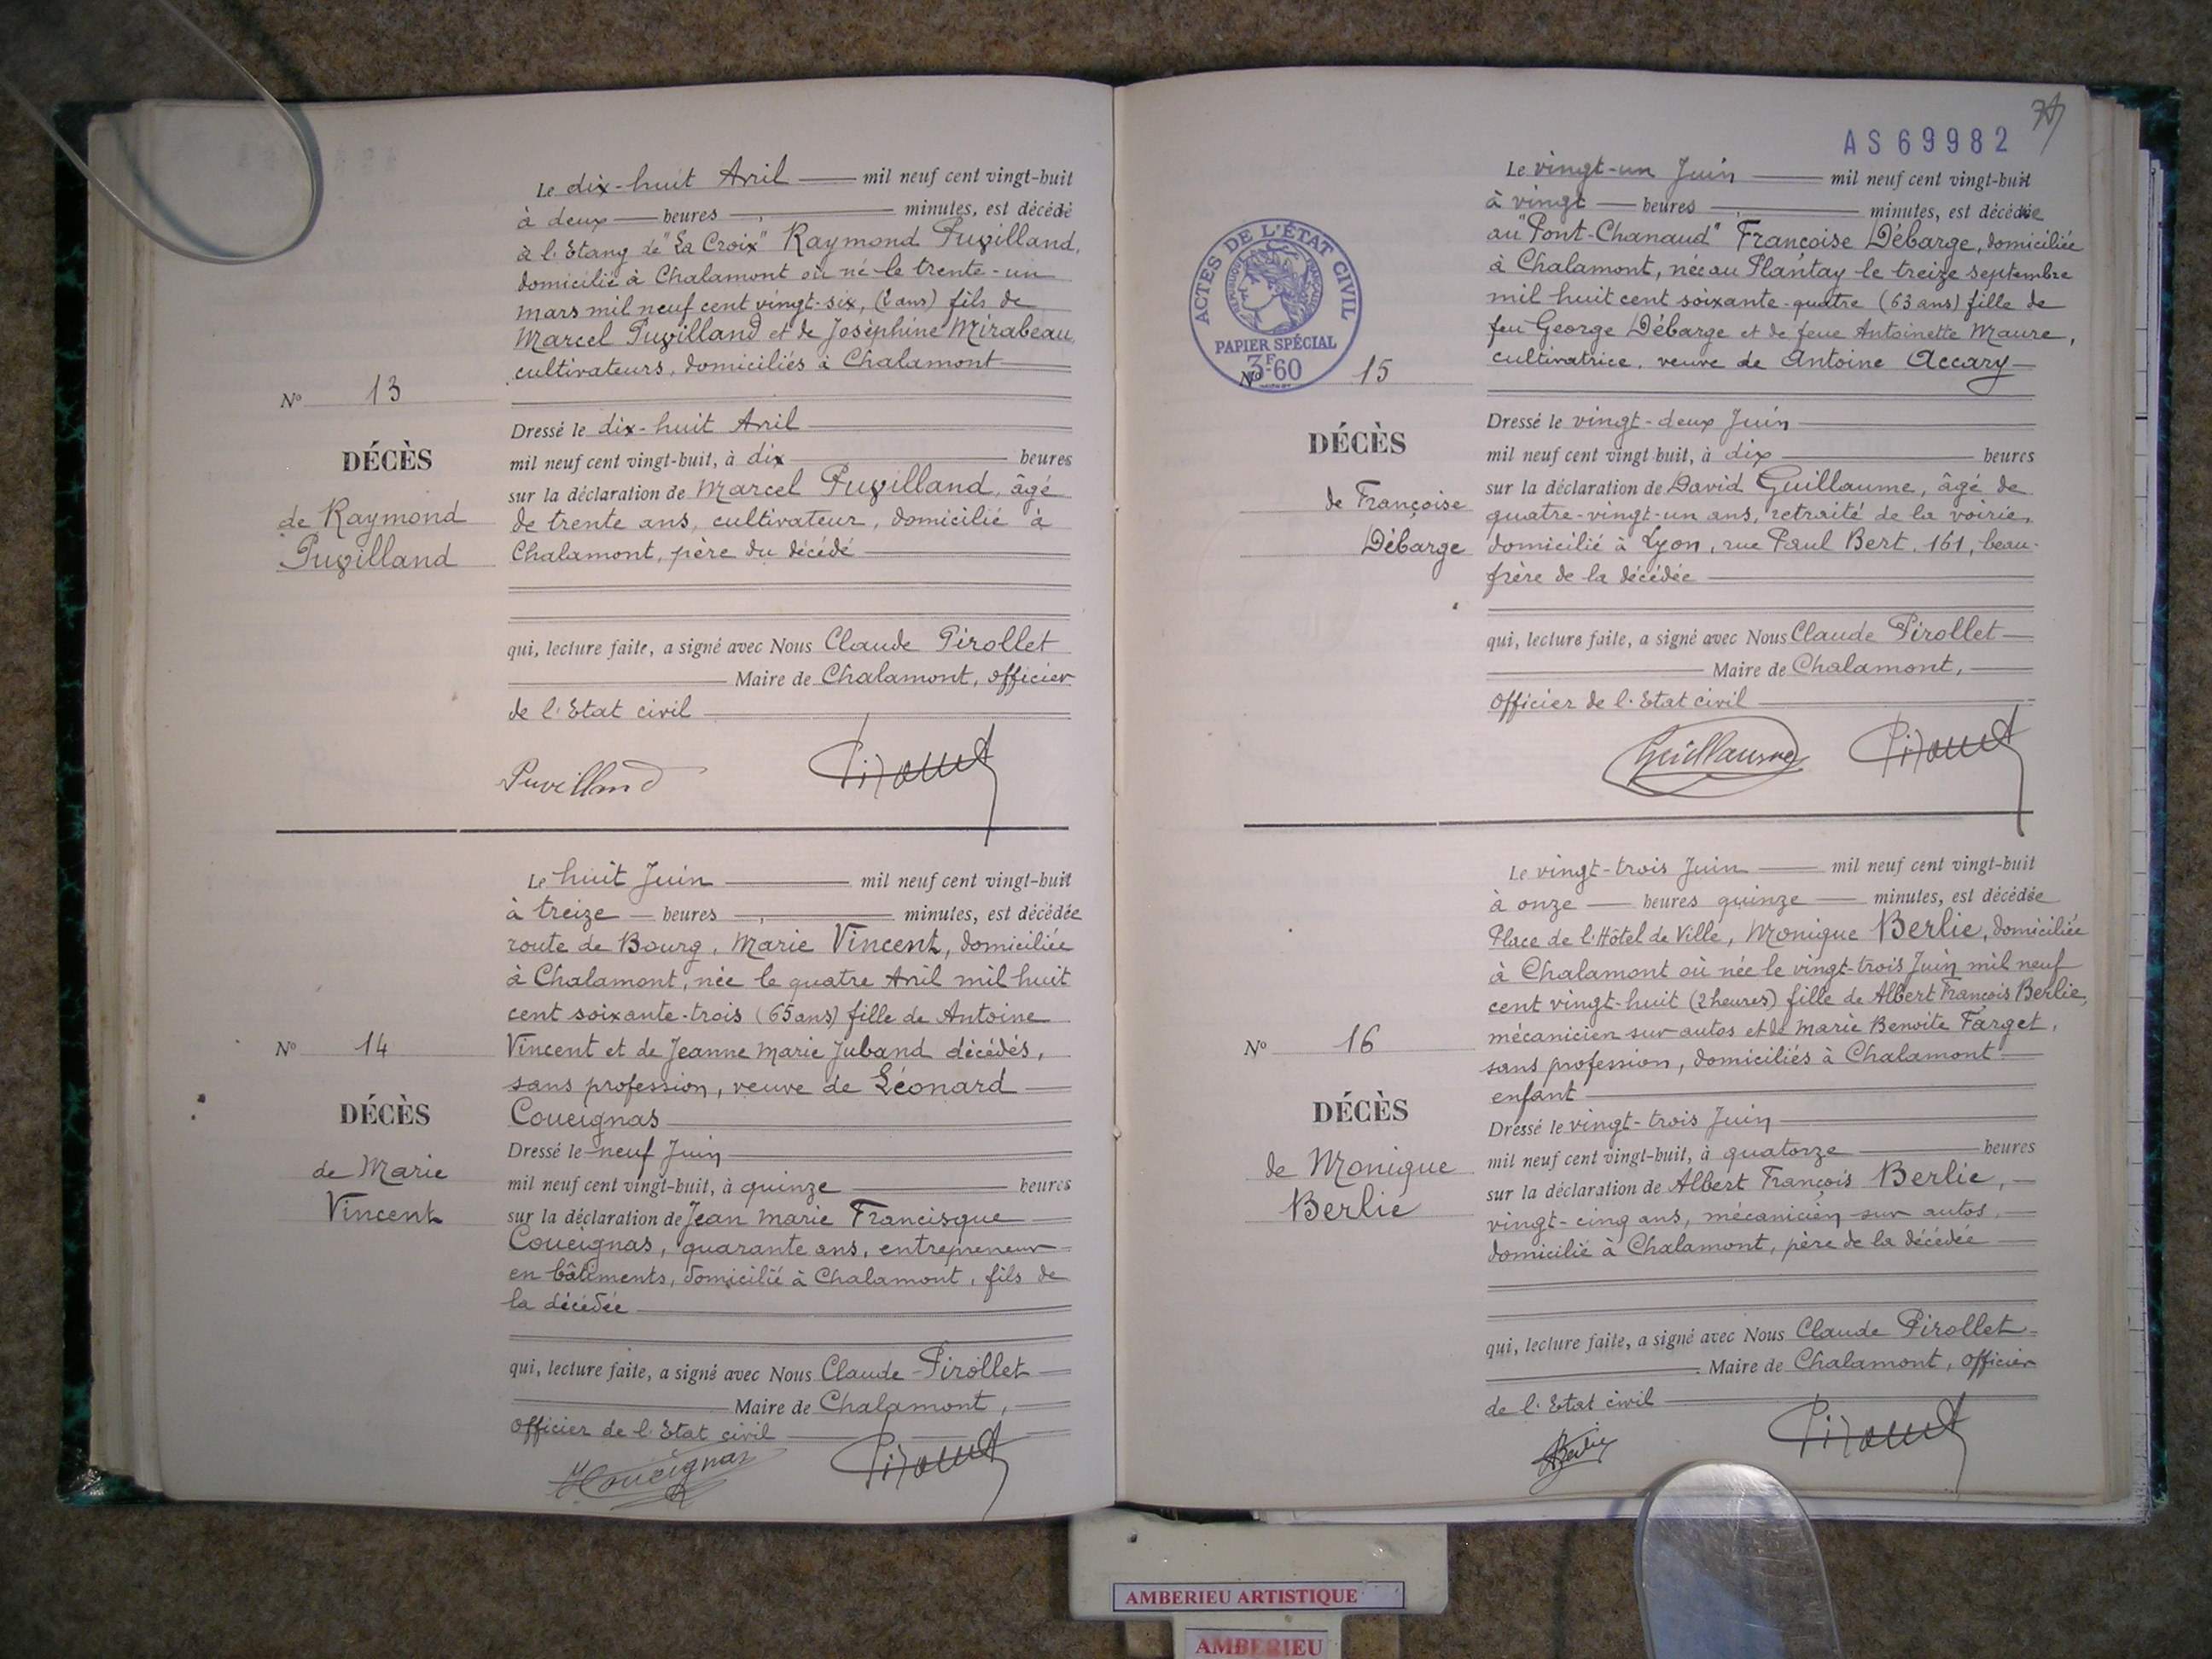 Le dix-huit Avril mil neuf cent vingt-huit
à deux heures , minutes, est décédé
à l'Etang de "La Croix" Raymond Puvilland,
domicilié à Chalamont où né le trente-un
mars mil neuf cent vingt-six, (2 ans) fils de
Marcel Puvilland et de Josèphine Mirabeau,
cultivateurs, domiciliés à Chalamont
No 13
DÉCÈS
de Raymond
Puvilland
Dressé le dix-huit Avril
mil neuf cent vingt-huit, à dix heures
sur la déclaration de Marcel Puvilland, âgé
de trente ans, cultivateur, domicilié à
Chalamont, père du décédé
qui, lecture faite, a signé avec Nous Claude Pirollet
Maire de Chalamont, officier
de l'Etat civil
Puvilland
Le huit Juin mil neuf cent vingt-huit
à treize heures , minutes, est décédée
route de Bourg, Marie Vincent, domiciliée
à Chalamont, née le quatre Avril mil huit
cent soixante-trois (65 ans) fille de Antoine
Vincent et de Jeanne Marie Juband décédés,
sans profession, veuve de Léonard
Coueignas
No 14
DÉCÈS
de Marie
Vincent
Dressé le neuf Juin
mil neuf cent vingt-huit, à quinze heures
sur la déclaration de Jean Marie Francisque
Coueignas, quarante ans, entrepreneur
en bâtiments, domicilié à Chalamont, fils de
la décédée
qui, lecture faite, a signé avec Nous Claude Pirollet
Maire de Chalamont,
Officier de l'Etat civil
Coueignas
AS 69982
ACTES DE L'ÉTAT CIVIL
RÉPUBLIQUE FRANÇAISE
PAPIER SPÉCIAL
3F.60
Le vingt-un Juin mil neuf cent vingt-huit
à vingt heures , minutes, est décédée
au "Pont-Chanaud" Françoise Débarge, domiciliée
à Chalamont, née au Plantay le treize septembre
mil huit cent soixante-quatre (63 ans) fille de
feu George Débarge et de feue Antoinette Maure,
cultivatrice, veuve de Antoine Accary
No 15
DÉCÈS
de Françoise
Débarge
Dressé le vingt-deux Juin
mil neuf cent vingt-huit, à dix heures
sur la déclaration de David Guillaume, âgé de
quatre-vingt-un ans, retraité de la voirie,
domicilié à Lyon, rue Paul Bert, 161, beau-
frère de la décédée
qui, lecture faite, a signé avec Nous Claude Pirollet
Maire de Chalamont,
Officier de l'Etat civil
Guillaume
Le vingt-trois Juin mil neuf cent vingt-huit
à onze heures quinze minutes, est décédée
Place de l'Hôtel de Ville, Monique Berlie, domiciliée
à Chalamont où née le vingt-trois Juin mil neuf
cent vingt-huit (2 heures) fille de Albert François Berlie,
mécanicien sur autos et de Marie Benoite Farget,
sans profession, domiciliés à Chalamont
enfant
No 16
DÉCÈS
de Monique
Berlie
Dressé le vingt-trois Juin
mil neuf cent vingt-huit, à quatorze heures
sur la déclaration de Albert François Berlie,
vingt-cinq ans, mécanicien sur autos,
domicilié à Chalamont, père de la décédée
qui, lecture faite, a signé avec Nous Claude Pirollet
Maire de Chalamont, officier
de l'Etat civil
ABerlie
AMBERIEU ARTISTIQUE
AMBERIEU